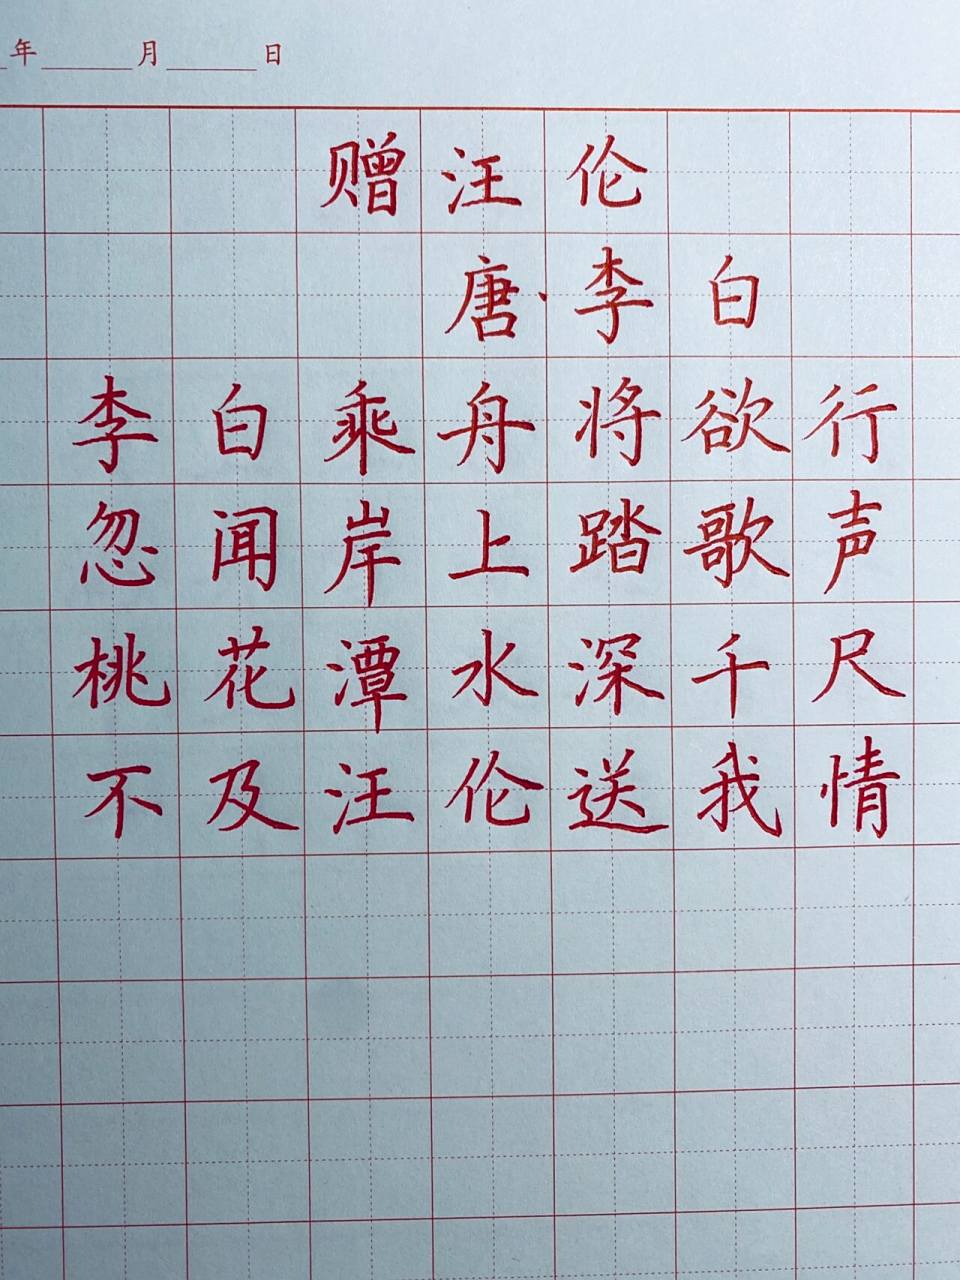 年 月 日
赠汪伦
唐·李白
李白乘舟将欲行
忽闻岸上踏歌声
桃花潭水深千尺
不及汪伦送我情